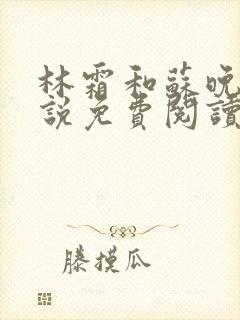 林霜和蘇晚
說免費閱讀
滕摸瓜